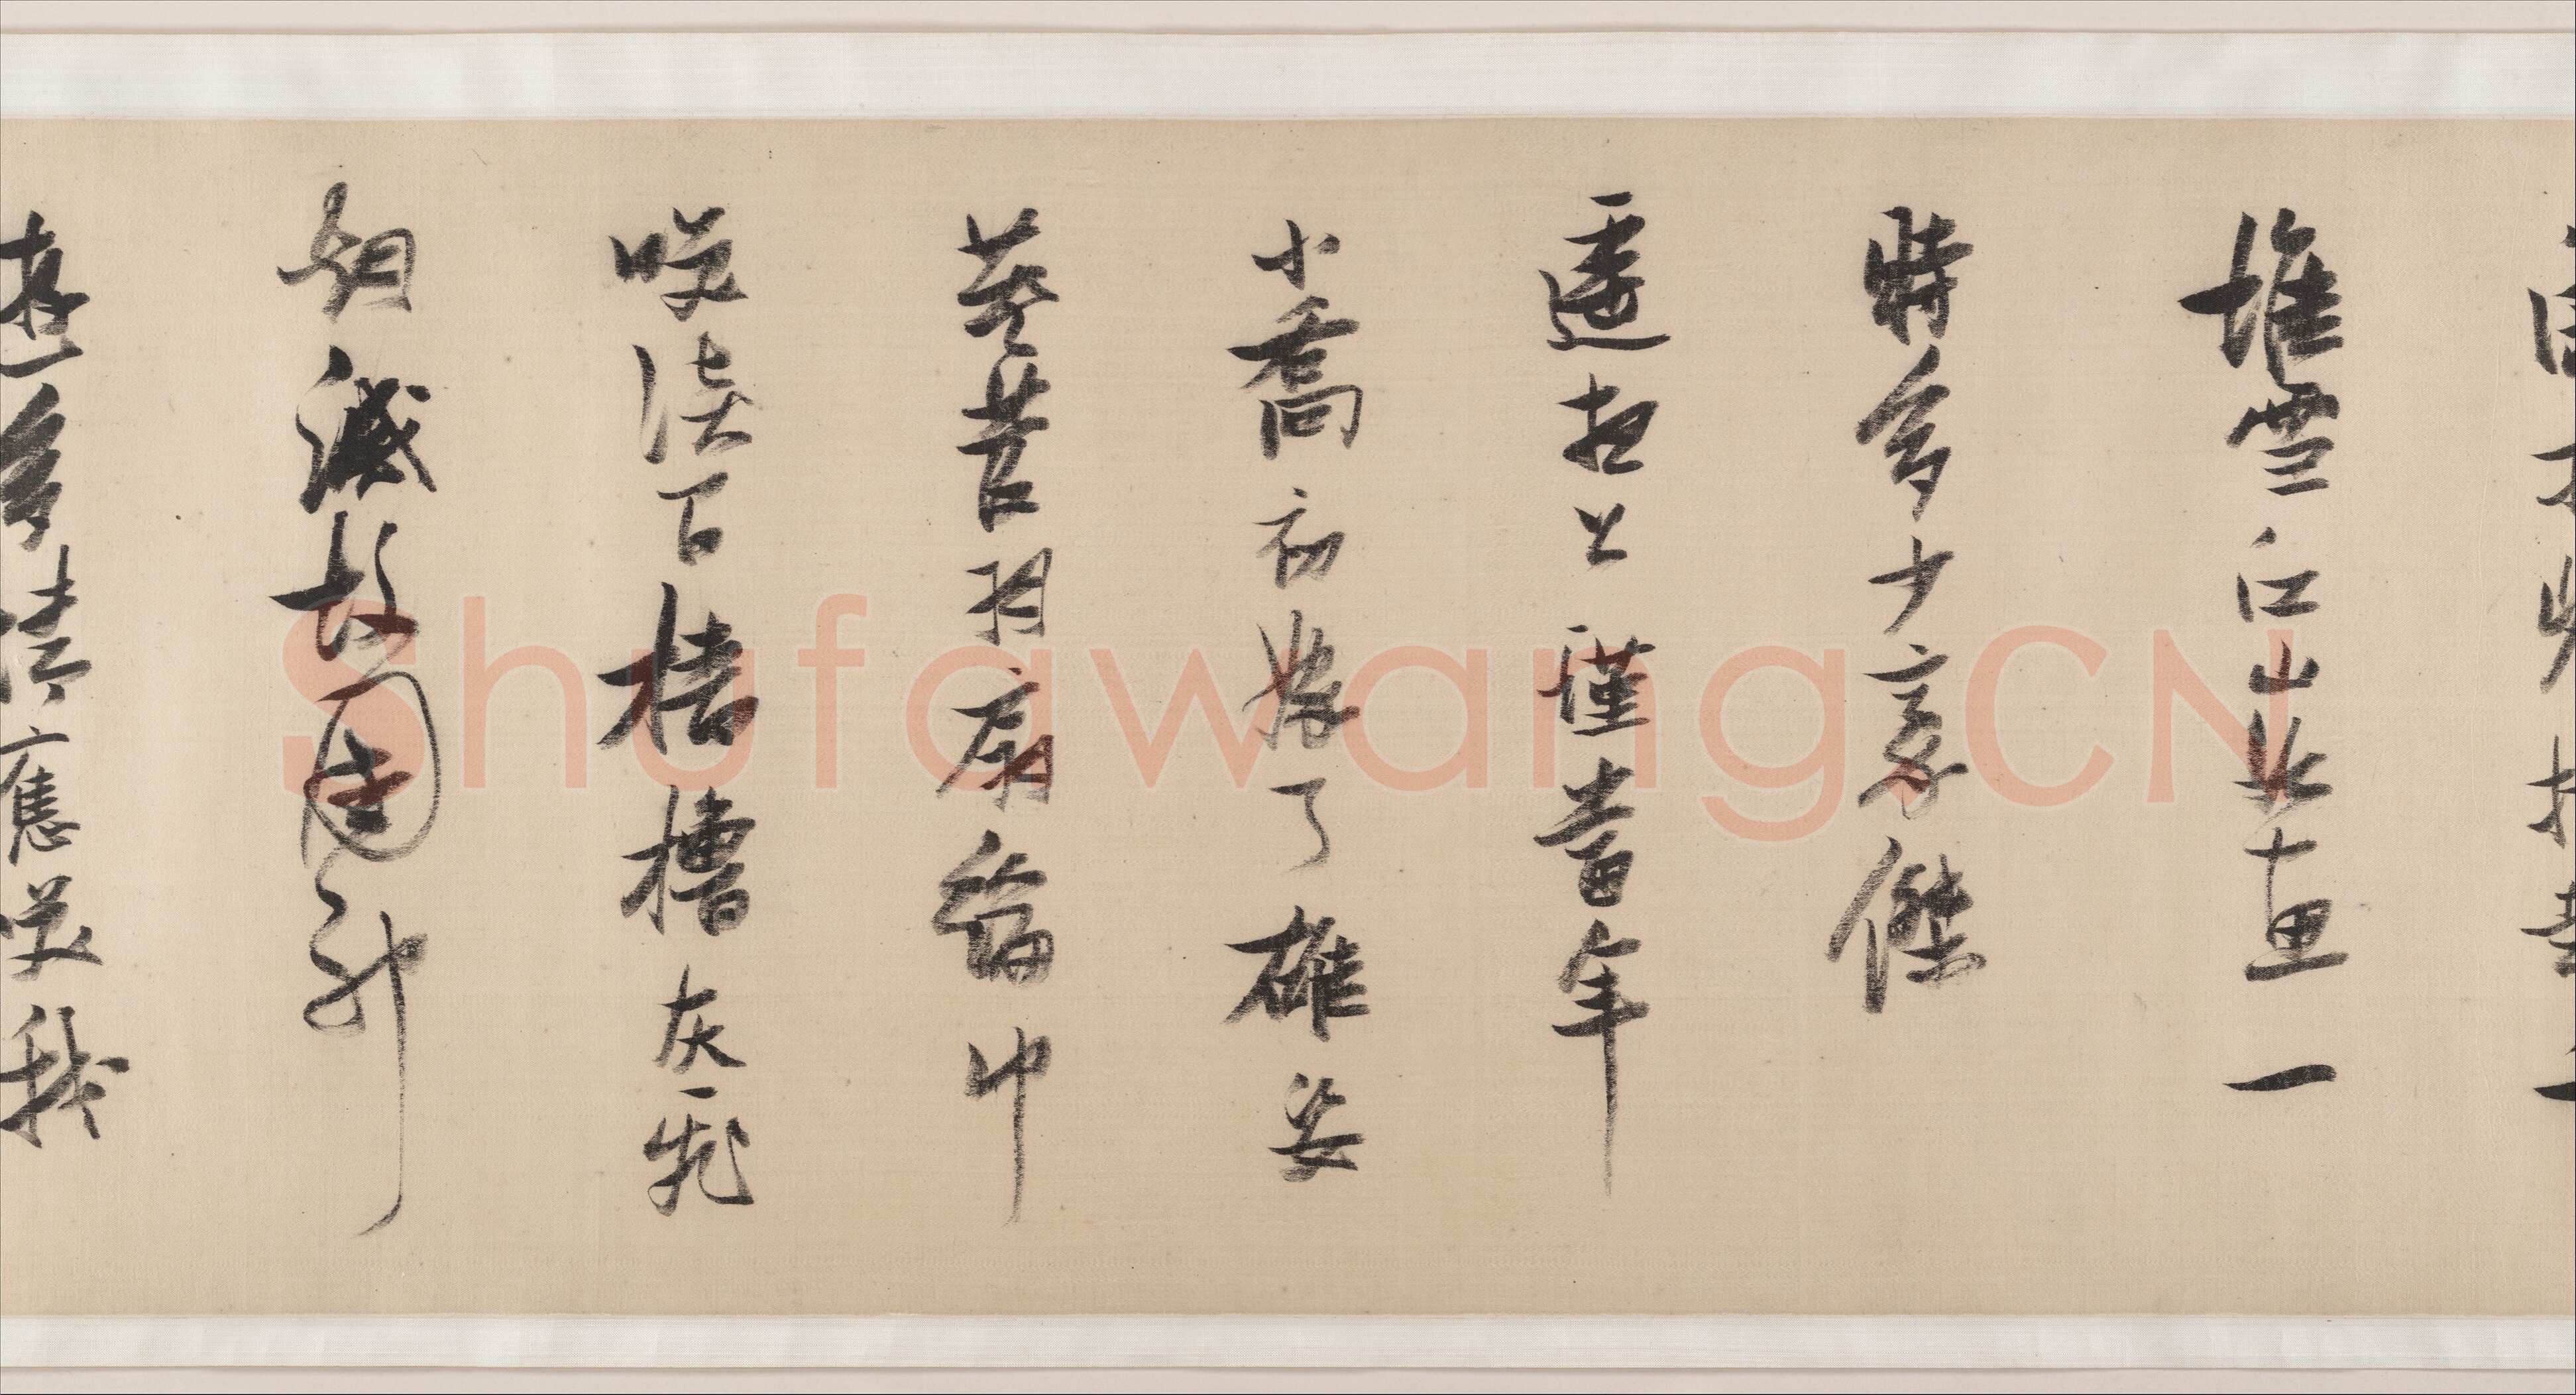 堆雪江山如畫一
時多少豪傑
遙想公瑾當年
小喬初嫁了雄姿
英發羽扇綸巾
咲談間檣櫓灰飛
烟滅故國神
遊多情應笑我
Shufawang.CN